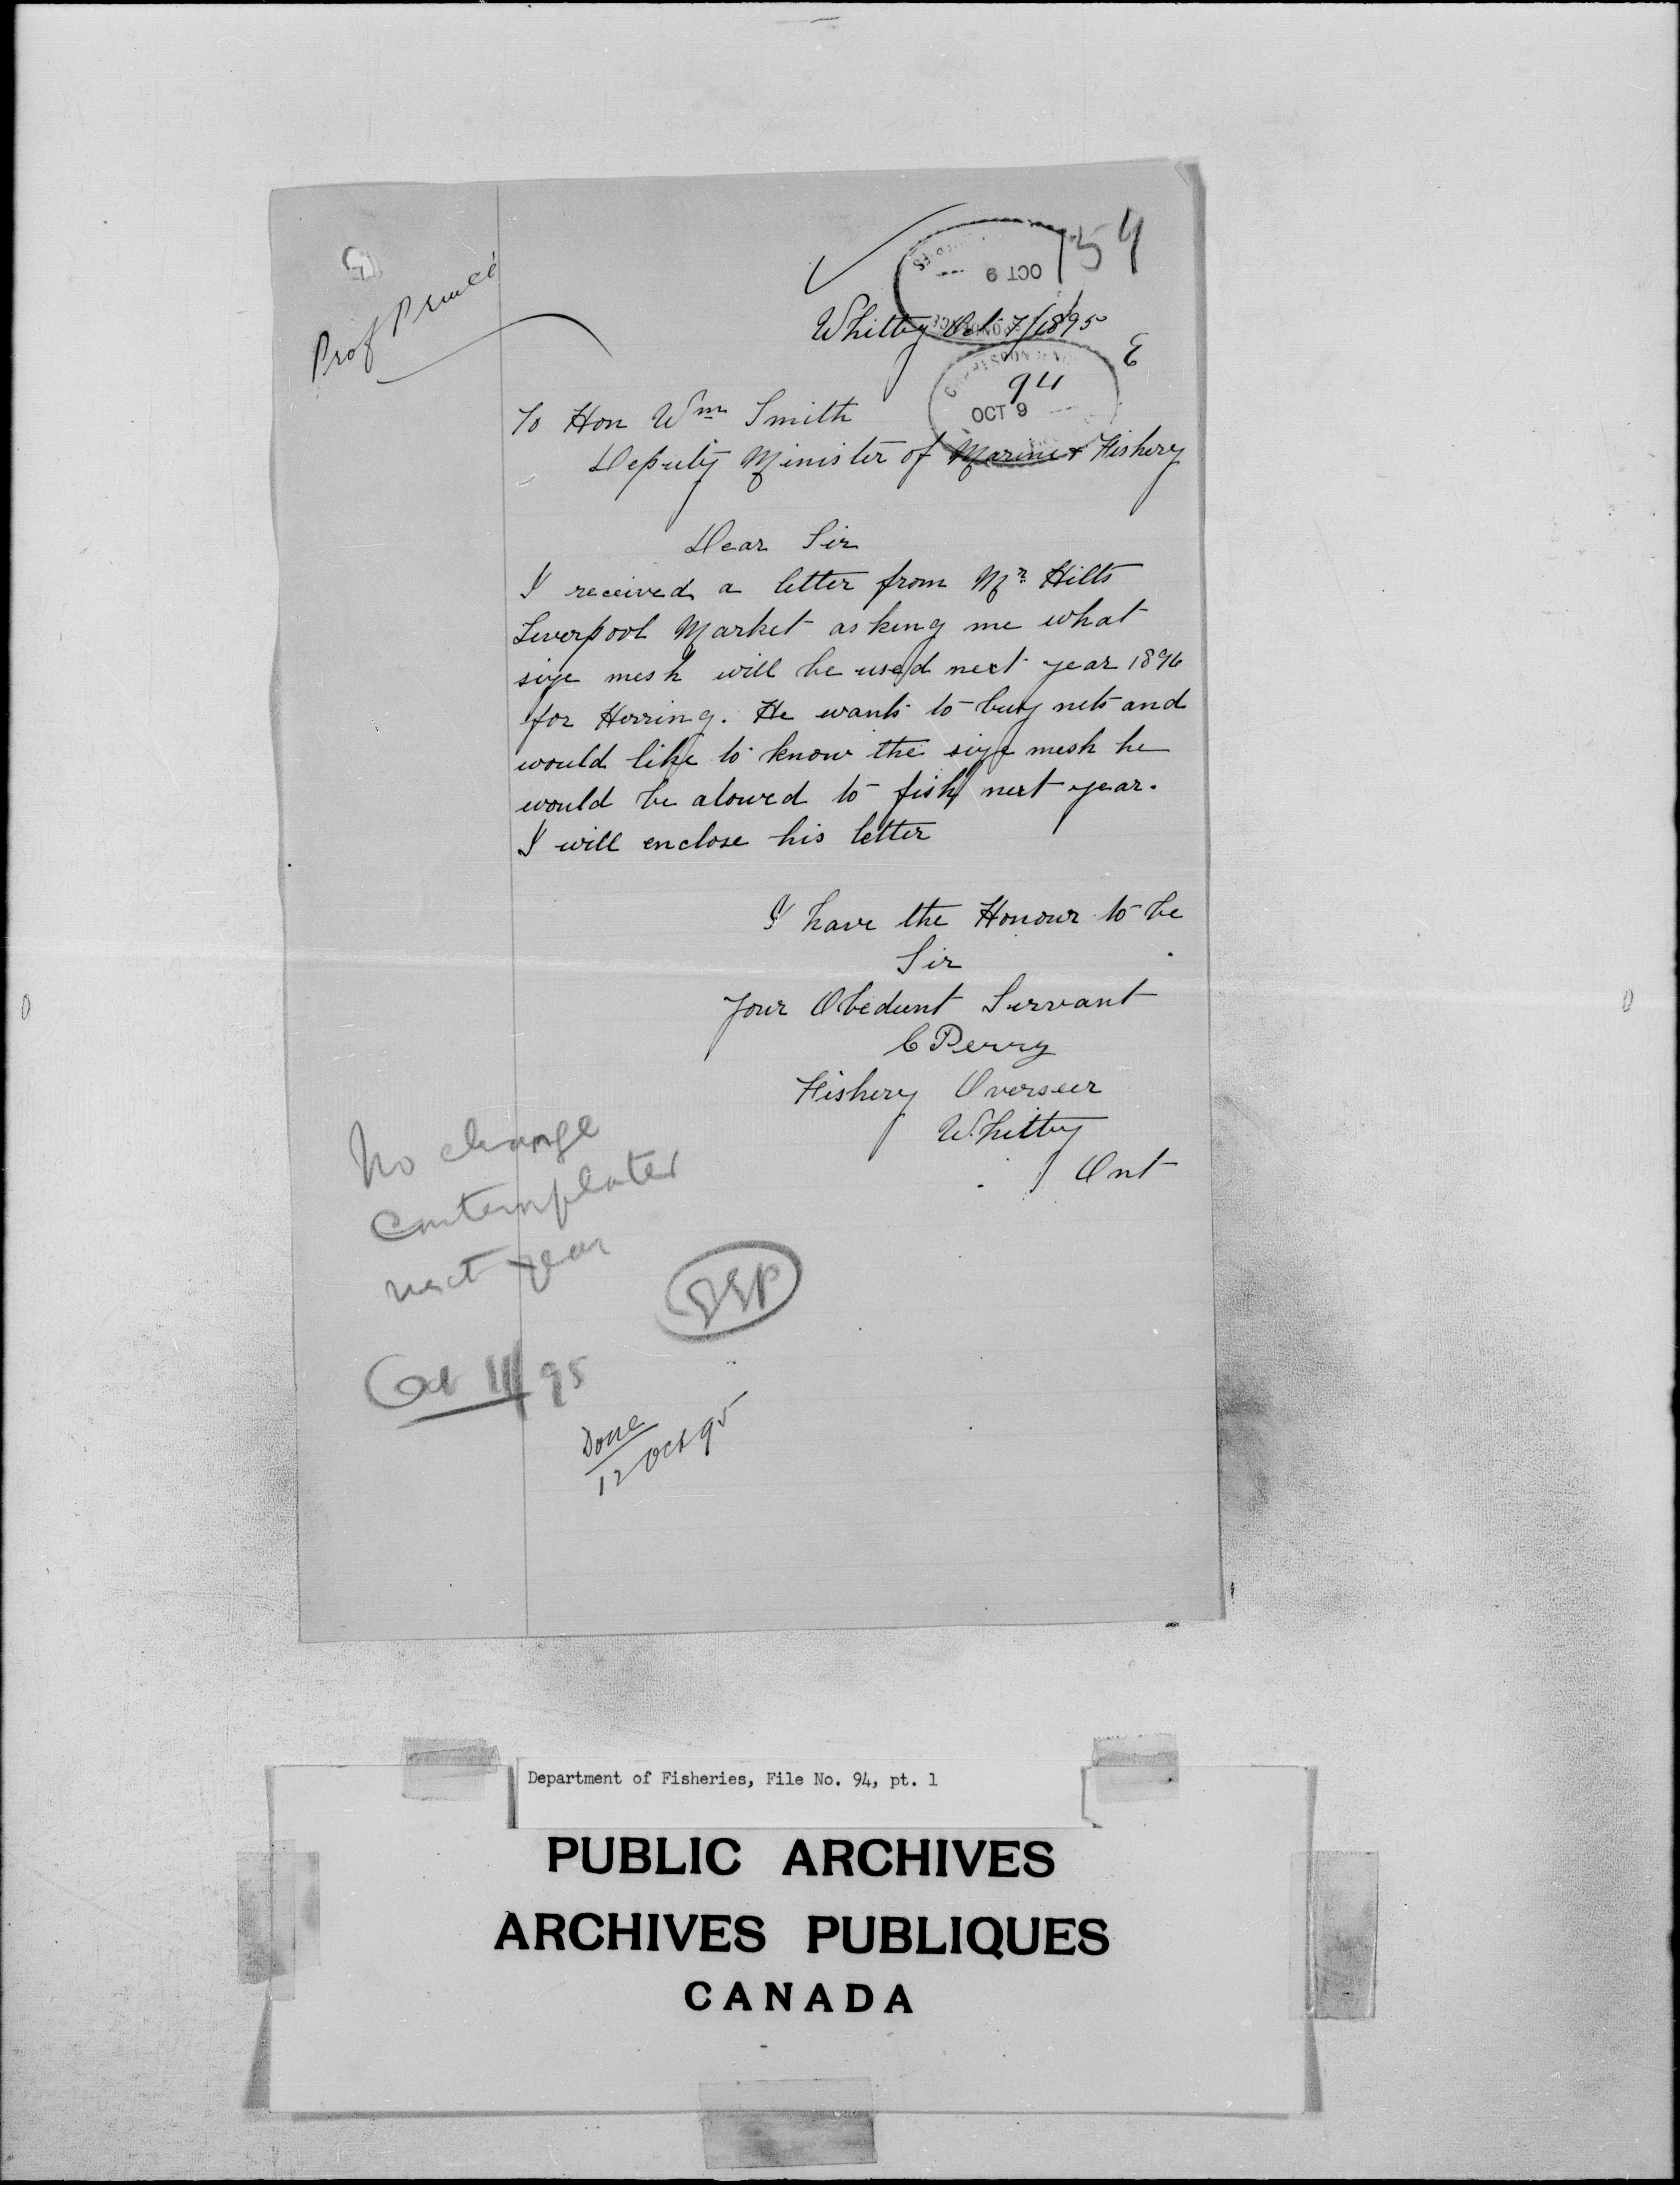 Prof Prince
OCT 9
154
Whitby Oct 7/1895
E
CORRESPONDENCE
94
OCT 9
To Hon Wm Smith
Deputy Minister of Marine & Fishery
Dear Sir
I received a letter from Mr Hilts
Liverpool Market asking me what
size mesh will be used next year 1896
for Herring. He wants to buy nets and
would like to know the size mesh he
would be alowed to fish next year.
I will enclose his letter
I have the Honour to be
Sir
Your Obedient Servant
C Perry
Fishery Overseer
Whitby
Ont
No change
contemplated
next year
EEP
Oct 11/95
Done
12 Oct 95
Department of Fisheries, File No. 94, pt. 1
PUBLIC ARCHIVES
ARCHIVES PUBLIQUES
CANADA